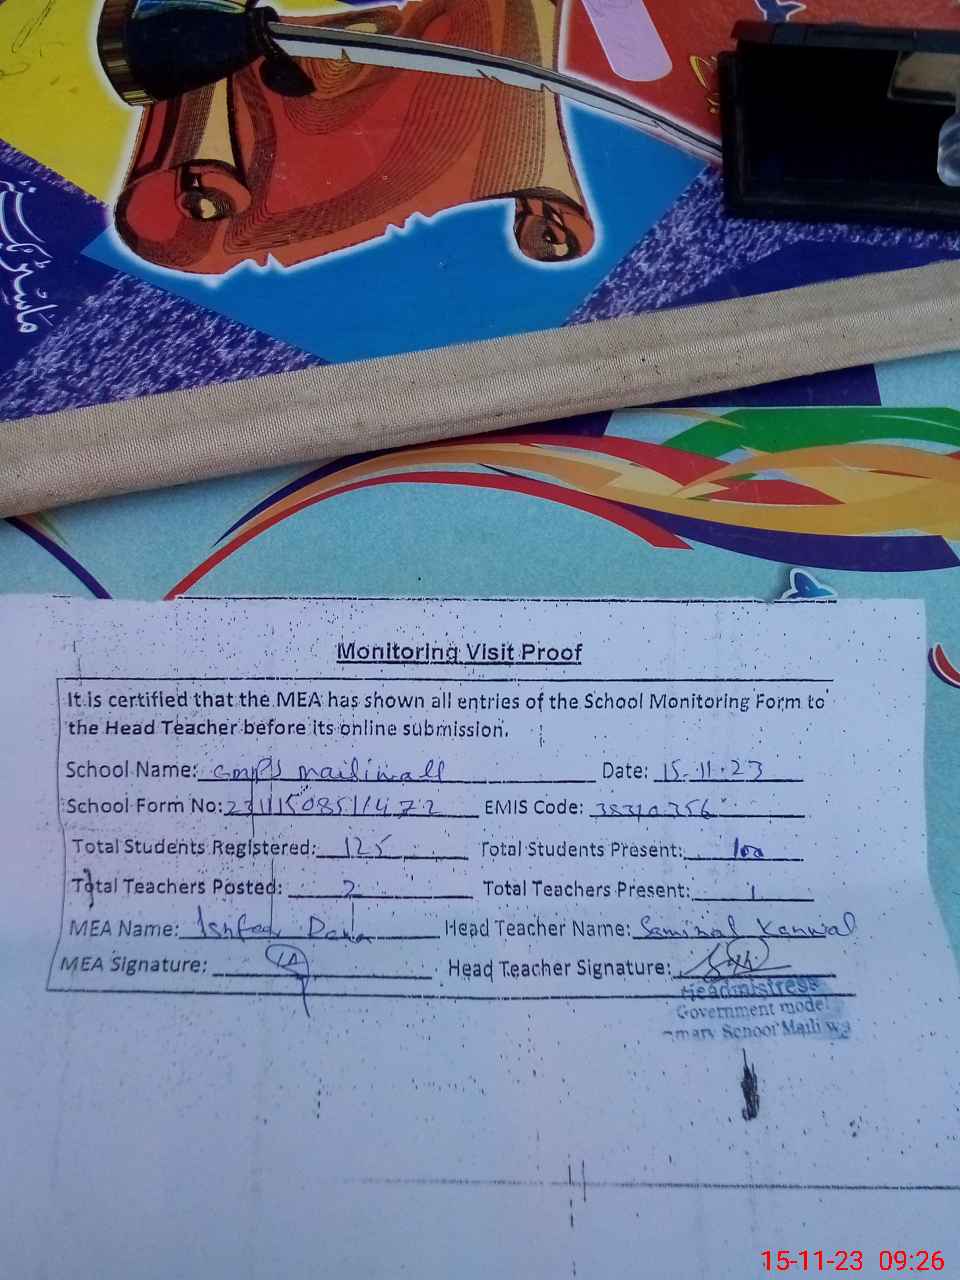 Monitoring Visit Proof
It is certified that the MEA has shown all entries of the School Monitoring Form to
the Head Teacher before its online submission.
School Name: GMPS Mailiwall Date: 15-11-23
School Form No: EMIS Code:
Total Students Registered: 125 Total Students Present: 100
Total Teachers Posted: 2 Total Teachers Present: 1
MEA Name: Head Teacher Name: Kanwal
MEA Signature: Head Teacher Signature:
Headmistress
Government model
mary School Maili wa
15-11-23 09:26